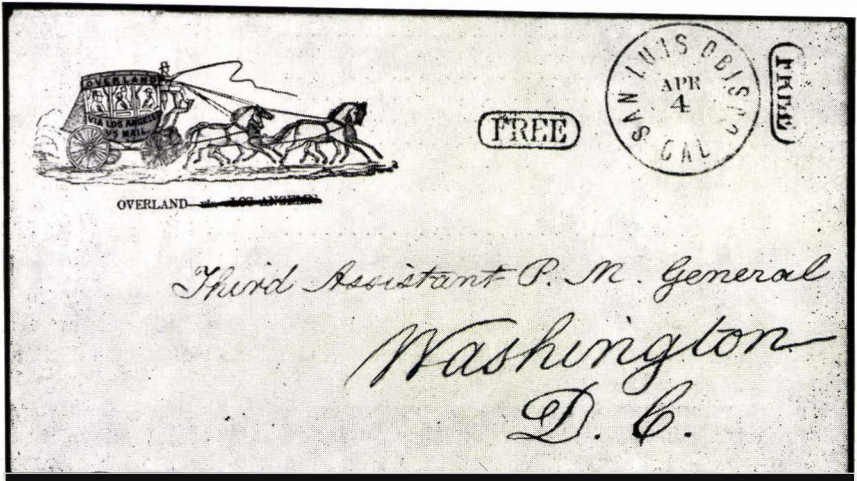 OVERLAND
VIA LOS ANGELES
US MAIL.
OVERLAND—via LOS ANGELES.
FREE
SAN LUIS OBISPO
APR
4
CAL
FREE
Third Assistant P. M. General
Washington
D. C.